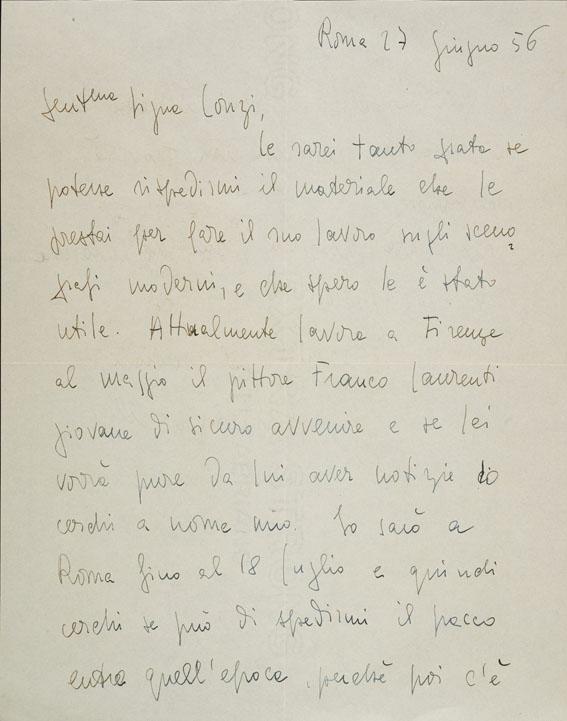 Roma 27 Giugno 56
Gent.ma Sig.na Conzi,
le sarei tanto grata se
potesse rispedirmi il materiale che le
prestai per fare il suo lavoro sugli sceno
grafi moderni, e che spero le è stato
utile. Attualmente lavora a Firenze
al maggio il pittore Franco Laurenti
giovane di sicuro avvenire e se lei
vorrà pure da lui aver notizie lo
cerchi a nome mio. Io sarò a
Roma fino al 18 luglio e quindi
cerchi se può di spedirmi il pacco
entro quell'epoca, perché poi c'è